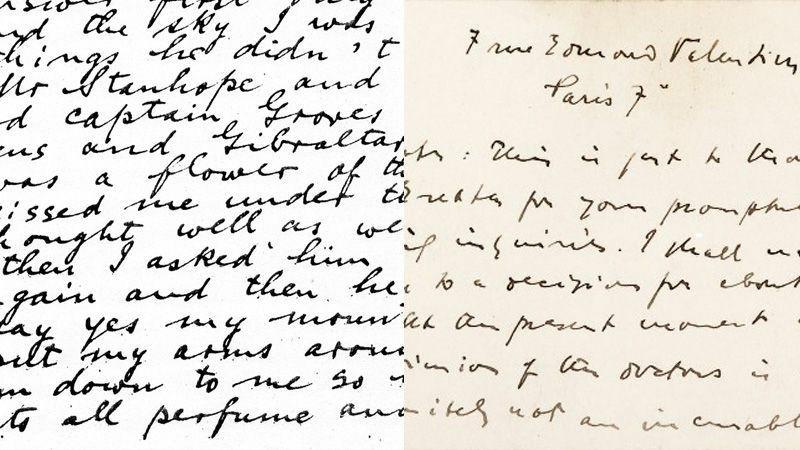 first
nd the sky I was
things he didn't
Mr Stanhope and
d captain Groves
cus and Gibraltar
was a flower of th
kissed me under
thought well as we
then I asked him
gain and then he
say yes my moun
put my arms aroun
m down to me so
ts all perfume and
7 rue Edmond Valentin
Paris 7e
: This is just to tha
for your prompt
inquiries. I shall
to a decision for about
at the present moment
inion of the doctors is
itely not an incurabl